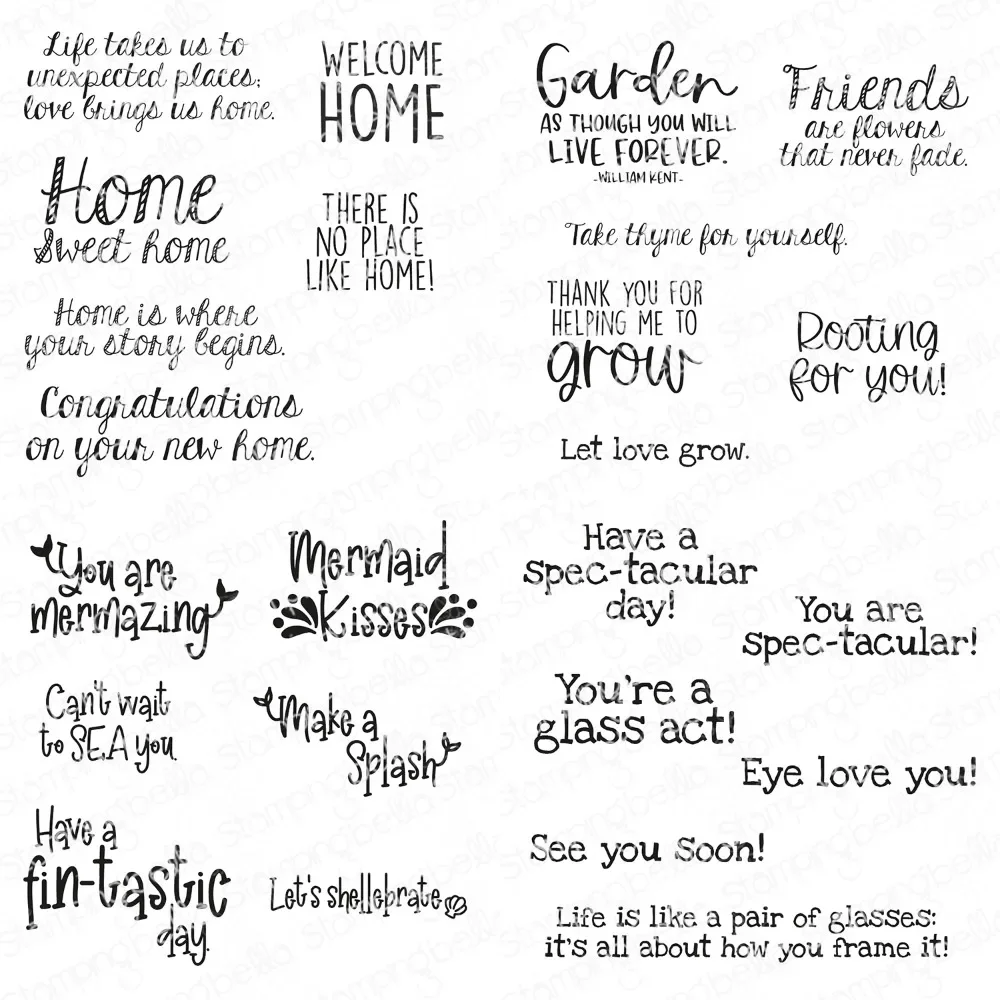 Life takes us to
unexpected places;
love brings us home.
WELCOME
HOME
Home
Sweet home
THERE IS
NO PLACE
LIKE HOME!
Home is where
your story begins.
Congratulations
on your new home.
Garden
AS THOUGH YOU WILL
LIVE FOREVER.
-WILLIAM KENT-
Friends
are flowers
that never fade.
Take thyme for yourself.
THANK YOU FOR
HELPING ME TO
grow
Rooting
for you!
Let love grow.
You are
mermazing
Mermaid
Kisses
Can't wait
to SEA you
Make a
Splash
Have a
fin-tastic
day.
Let's shellebrate
Have a
spec-tacular
day!
You are
spec-tacular!
You're a
glass act!
Eye love you!
See you soon!
Life is like a pair of glasses:
it's all about how you frame it!
stampingbella